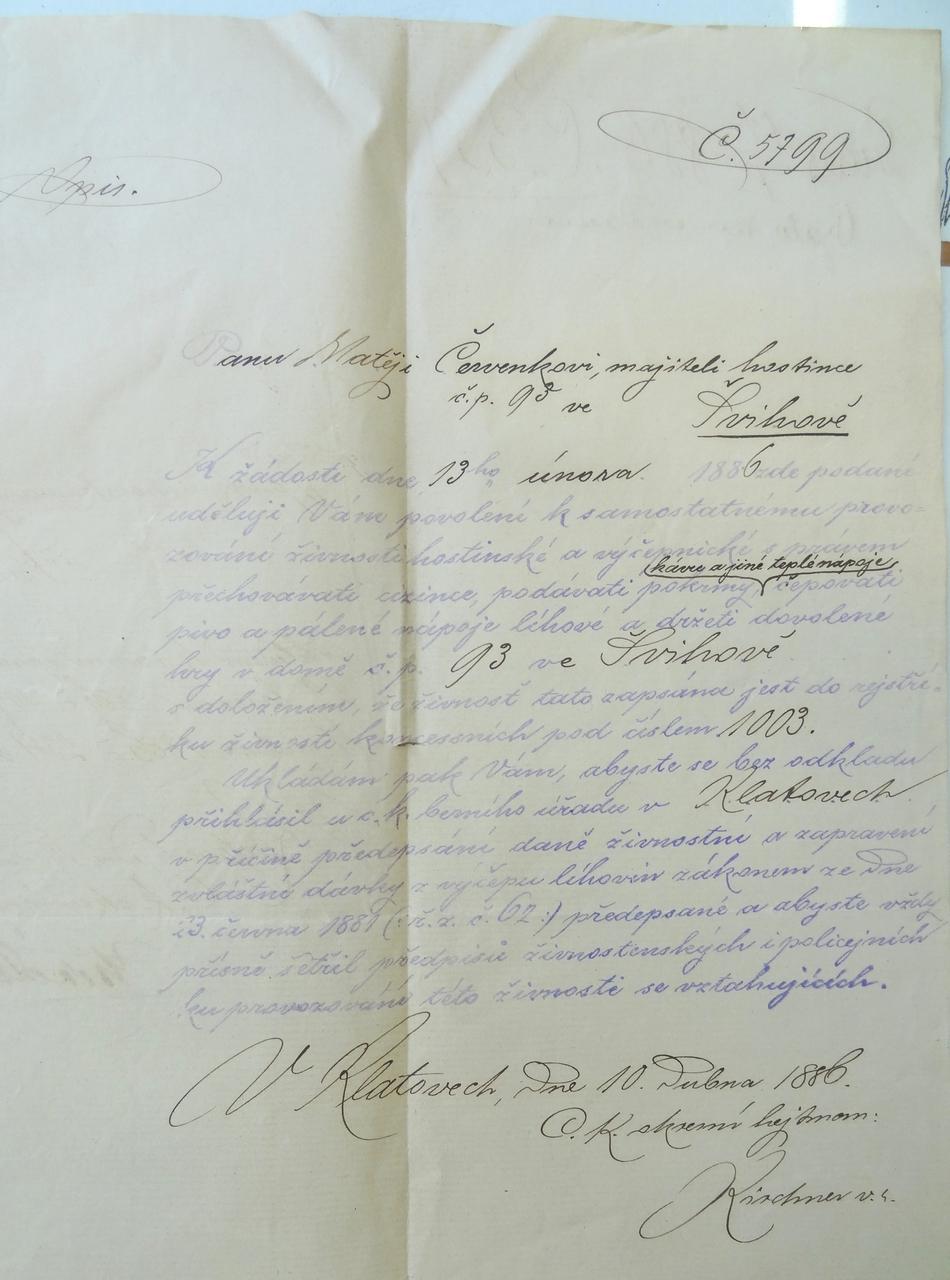 Č. 5799
Opis.
Panu Matěji Červenkovi, majiteli hostince
č.p. 93 ve Švihově
K žádosti dne 13ho února 1886 zde podané
uděluji Vám povolení k samostatnému provo-
zování živnosti hostinské a výčepnické s právem
kavu a jiné teplé nápoje,
přechovávati cizince, podávati pokrmy, čepovati
pivo a pálené nápoje líhové a držeti dovolené
hry v domě č.p. 93 ve Švihově
s doložením, že živnosť tato zapsána jest do rejstří-
ku živností koncesních pod číslem 1003.
Ukládám pak Vám, abyste se bez odkladu
přihlásil u c.k. berního úřadu v Klatovech
v příčině předepsání daně živnostní a zapravení
zvláštní dávky z výčepu líhovin zákonem ze dne
23. června 1881 (: ř. z. č. 62 :) předepsané a abyste vždy
přísně šetřil předpisů živnostenských i policejních
ku provozování této živnosti se vztahujících.
V Klatovech, dne 10. dubna 1886.
C. K. okresní hejtman:
Kirchner v. r.